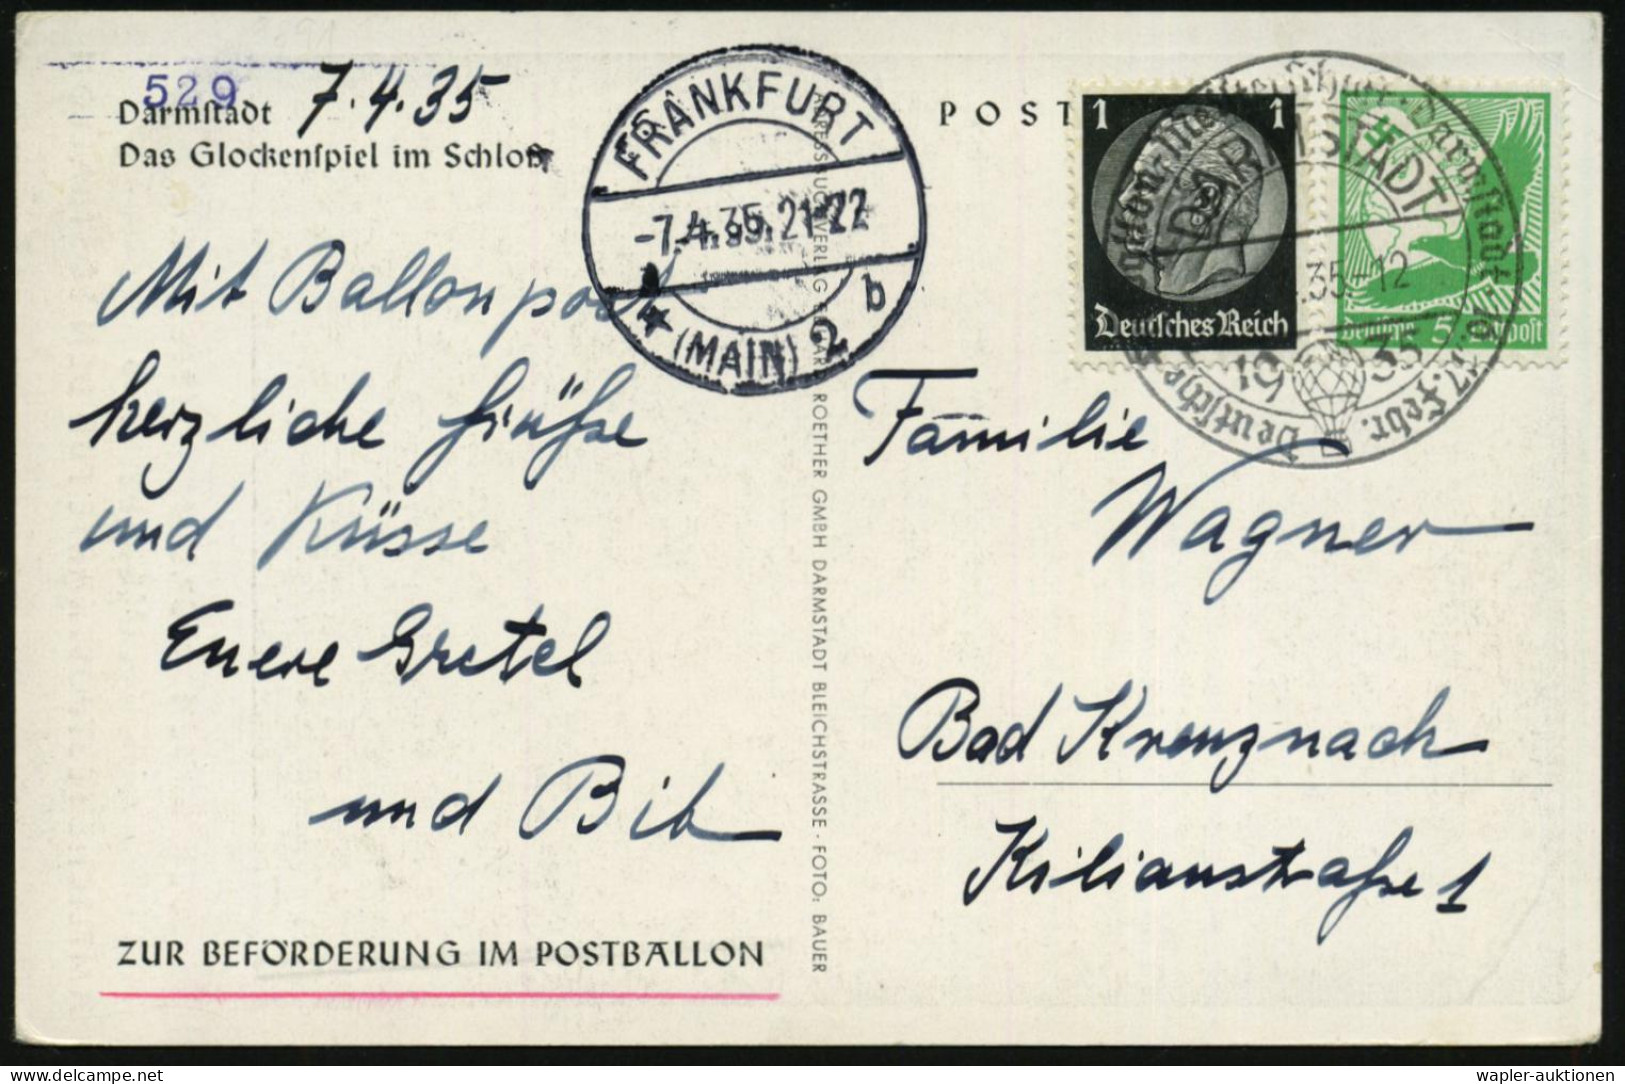 529
Darmstadt 7.4.35
Das Glockenspiel im Schloß
Mit Ballonpost
herzliche Grüße
und Küsse
Euere Gretel
und Bib
ZUR BEFÖRDERUNG IM POSTBALLON
FRANKFURT
-7.4.35.21-22
* (MAIN) 2 b
VERLAG
ROETHER GMBH DARMSTADT BLEICHSTRASSE · FOTO: BAUER
POST
1 1
Deutsches Reich
5
DARMSTADT
35-12
1935
17. Febr.
Familie
Wagner
Bad Kreuznach
Kilianstraße 1
wapler-auktionen
delcampe.net